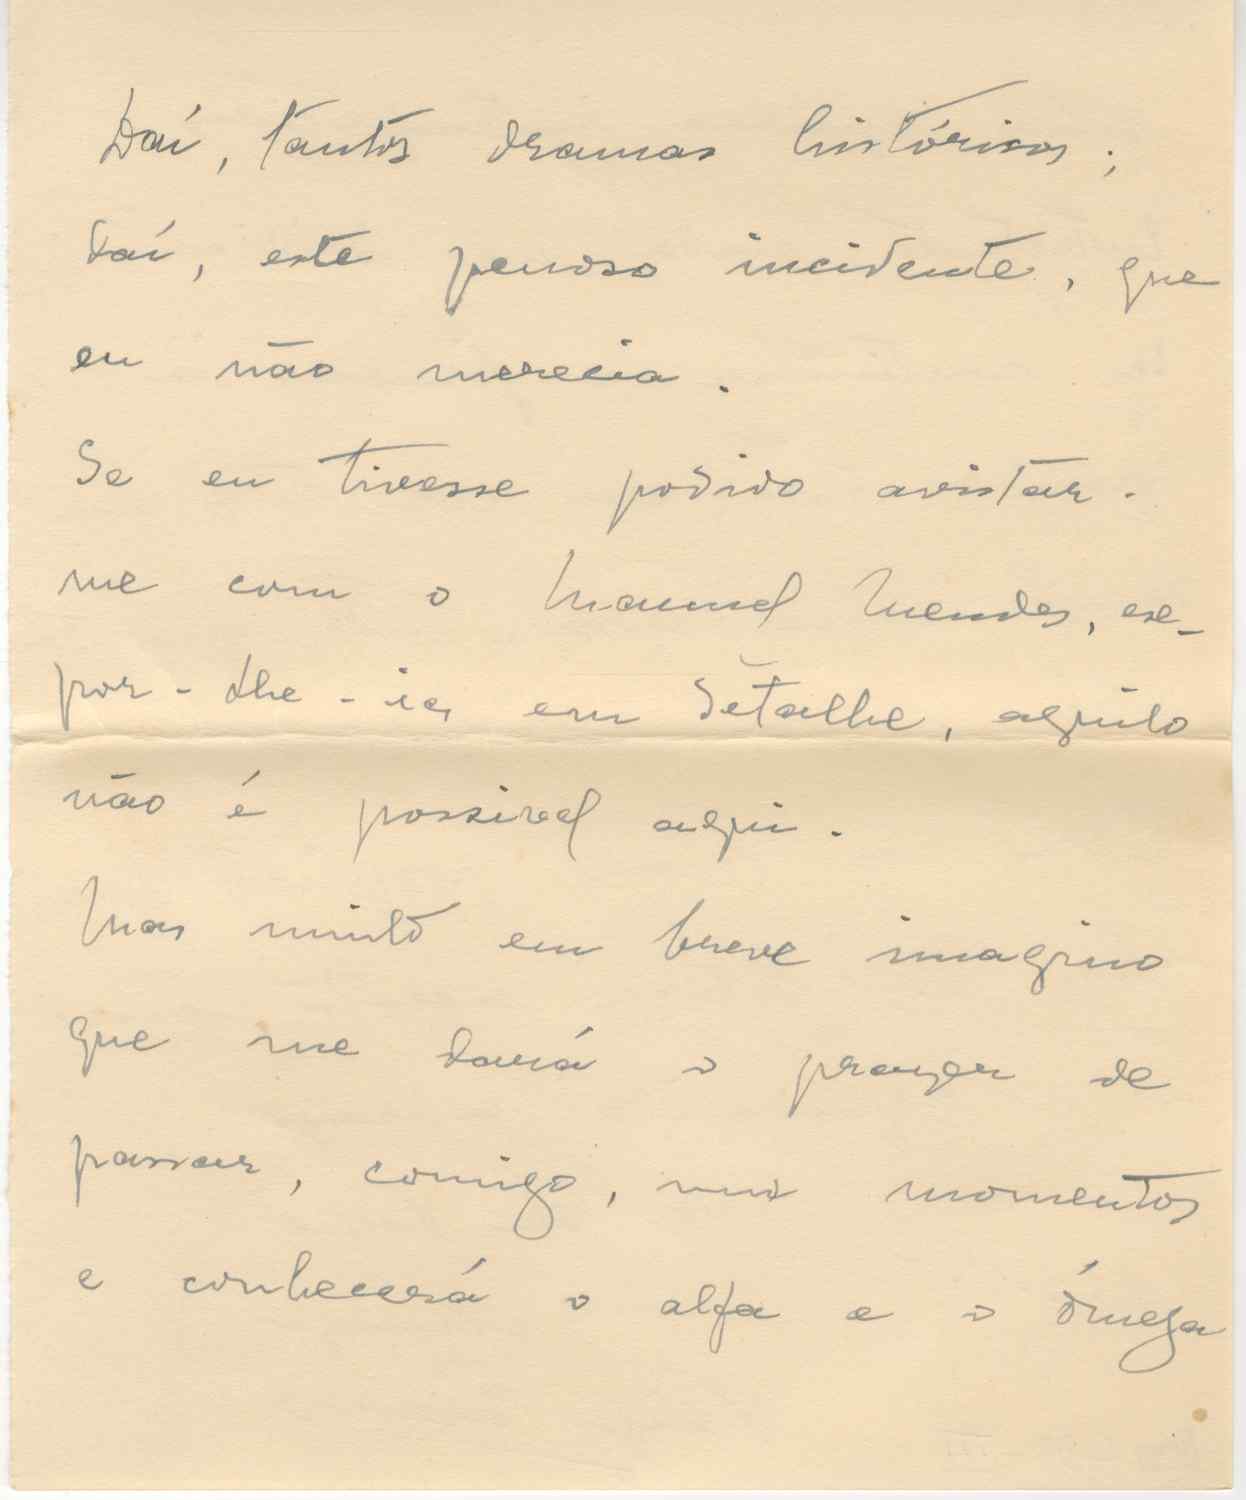 Daí, tantos dramas históricos;
daí, este penoso incidente, que
eu não merecia.
Se eu tivesse podido avistar-
me com o Manuel Mendes, ex-
por-lhe-ia, em detalhe, aquilo
não é possivel aqui.
Mas muito em breve imagino
que me dará o prazer de
passar, comigo, uns momentos
e conhecerá o alfa e o ómega